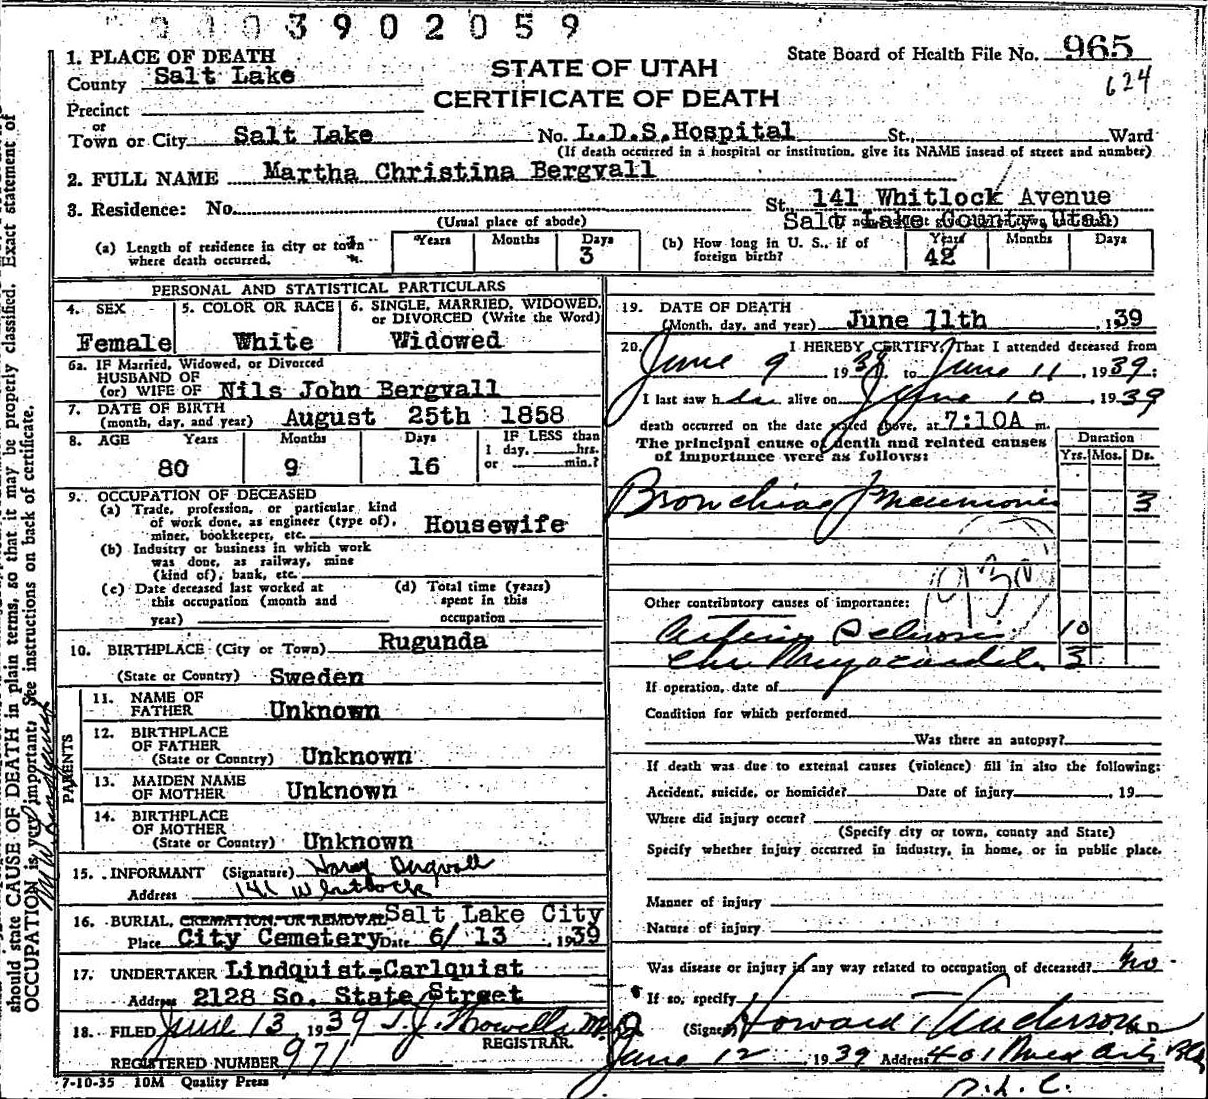 3902059
1. PLACE OF DEATH
State Board of Health File No. 965
County Salt Lake
STATE OF UTAH
624
Precinct
CERTIFICATE OF DEATH
or
Town or City Salt Lake No. L.D.S.Hospital St., Ward
(If death occurred in a hospital or institution, give its NAME insead of street and number)
2. FULL NAME Martha Christina Bergvall
3. Residence: No. St. 141 Whitlock Avenue
(Usual place of abode) Salt Lake County, Utah
(a) Length of residence in city or town where death occurred. Years Months Days 3
(b) How long in U. S., if of foreign birth? Years 42 Months Days
PERSONAL AND STATISTICAL PARTICULARS
4. SEX Female
5. COLOR OR RACE White
6. SINGLE, MARRIED, WIDOWED, or DIVORCED (Write the Word) Widowed
6a. IF Married, Widowed, or Divorced
HUSBAND OF
(or) WIFE OF Nils John Bergvall
7. DATE OF BIRTH
(month, day, and year) August 25th 1858
8. AGE Years 80 Months 9 Days 16 IF LESS than 1 day, hrs. or min.?
9. OCCUPATION OF DECEASED
(a) Trade, profession, or particular kind
of work done, as engineer (type of),
miner, bookkeeper, etc. Housewife
(b) Industry or business in which work
was done, as railway, mine
(kind of), bank, etc.
(c) Date deceased last worked at
this occupation (month and
year)
(d) Total time (years)
spent in this
occupation
10. BIRTHPLACE (City or Town) Rugunda
(State or Country) Sweden
PARENTS
11. NAME OF
FATHER Unknown
12. BIRTHPLACE
OF FATHER
(State or Country) Unknown
13. MAIDEN NAME
OF MOTHER Unknown
14. BIRTHPLACE
OF MOTHER
(State or Country) Unknown
15. INFORMANT (Signature) Harry Bergvall
Address 141 Whitlock
16. BURIAL, CREMATION, OR REMOVAL Salt Lake City
Place City Cemetery Date 6/ 13 1939
17. UNDERTAKER Lindquist-Carlquist
Address 2128 So. State Street
18. FILED June 13 1939 T.J. Howells M.D.
REGISTRAR.
REGISTERED NUMBER 971
7-10-35 10M Quality Press
19. DATE OF DEATH
(Month, day, and year) June 11th 1939
20. I HEREBY CERTIFY, That I attended deceased from
June 9 1939, to June 11, 1939;
I last saw her alive on June 10, 1939
death occurred on the date stated above, at 7:10A m.
The principal cause of death and related causes
of importance were as follows:
Duration
Yrs. Mos. Ds.
Bronchial Pneumonia 3
930
Other contributory causes of importance:
Arterio Sclerosis 10
Chr Myocarditis 3
If operation, date of
Condition for which performed
Was there an autopsy?
If death was due to external causes (violence) fill in also the following:
Accident, suicide, or homicide? Date of injury , 19
Where did injury occur?
(Specify city or town, county and State)
Specify whether injury occurred in industry, in home, or in public place.
Manner of injury
Nature of injury
Was disease or injury in any way related to occupation of deceased? No
If so, specify
(Signed) Howard T Anderson M.D.
June 12 1939 Address 401 Med Arts Bldg
S.L.C.
should state CAUSE OF DEATH in plain terms, so that it may be properly classified. Exact statement of
OCCUPATION is very important. See instructions on back of certificate.